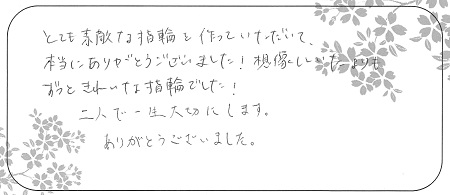 とても素敵な指輪を作っていただいて、
本当にありがとうございました！想像していたよりも
ずっときれいな指輪でした！
二人で一生大切にします。
ありがとうございました。